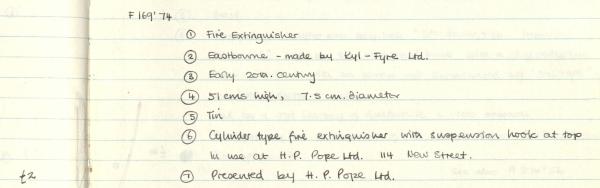 F 169' 74
① Fire Extinguisher
② Eastbourne - made by Kyl-Fyre Ltd.
③ Early 20th. century
④ 51 cms high, 7.5 cm. diameter
⑤ Tin
⑥ Cylinder type fire extinguisher with suspension hook at top
In use at H.P. Pope Ltd. 114 New Street.
£2 ⑦ Presented by H.P. Pope Ltd.